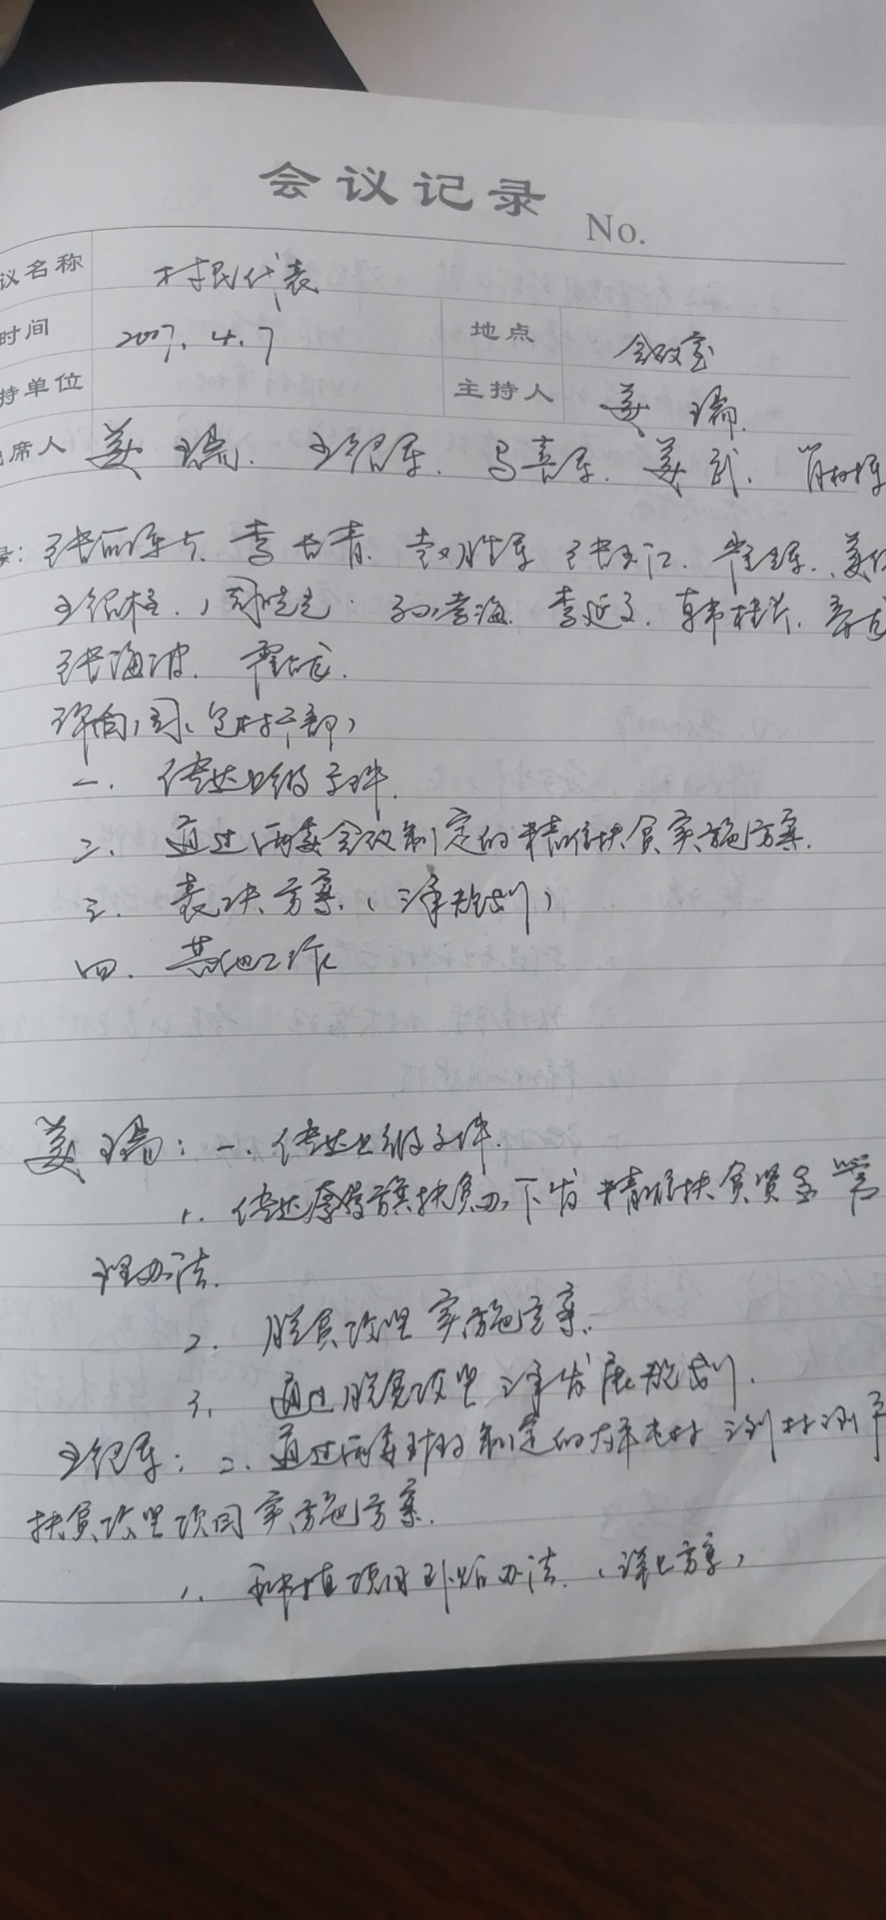 会议记录
No.
议名称 村民代表
时间 2007.4.7 地点 会议室
持单位 主持人 姜瑞
席人 姜瑞. 王绍军. 马喜军. 姜武.
录: 李长青. 赵胜军 张玉江.
王绍柱. 周晓光. 孙海. 李延文. 韩桂芹.
张海波.
许向国(包村干部)
一. 传达上级文件.
二. 通过两委会议制定的精准扶贫实施方案.
三. 表决方案. (详规划)
四. 其他工作
姜瑞: 一. 传达上级文件.
1. 传达 旗扶贫办下发精准扶贫资金管
理办法.
2. 脱贫攻坚实施方案.
3. 通过脱贫攻坚 发展规划.
王绍军: 二. 通过两委 制定的
扶贫攻坚项目实施方案.
1. 种植项目补贴办法. (详见方案)